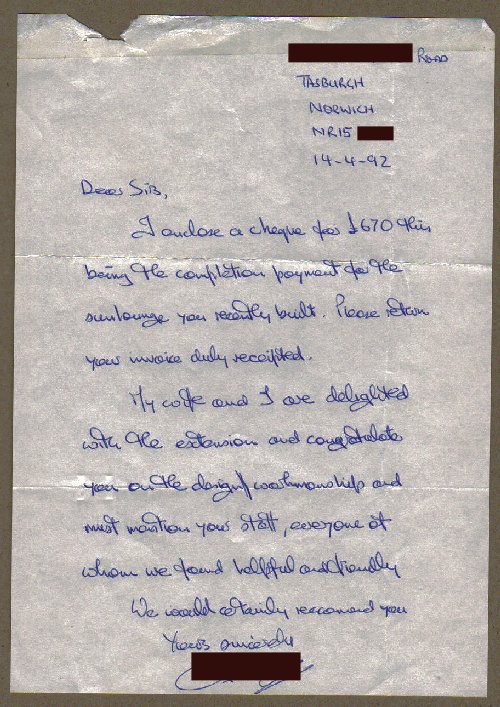 Road
TASBURGH
NORWICH
NR15
14-4-92
Dear Sirs,
I enclose a cheque for £670 this
being the completion payment for the
sunlounge you recently built. Please return
your invoice duly receipted.
My wife and I are delighted
with the extension and congratulate
you on the design/workmanship and
must mention your staff, everyone of
whom we found helpful and friendly
We would certainly reccomend you
Yours sincerely